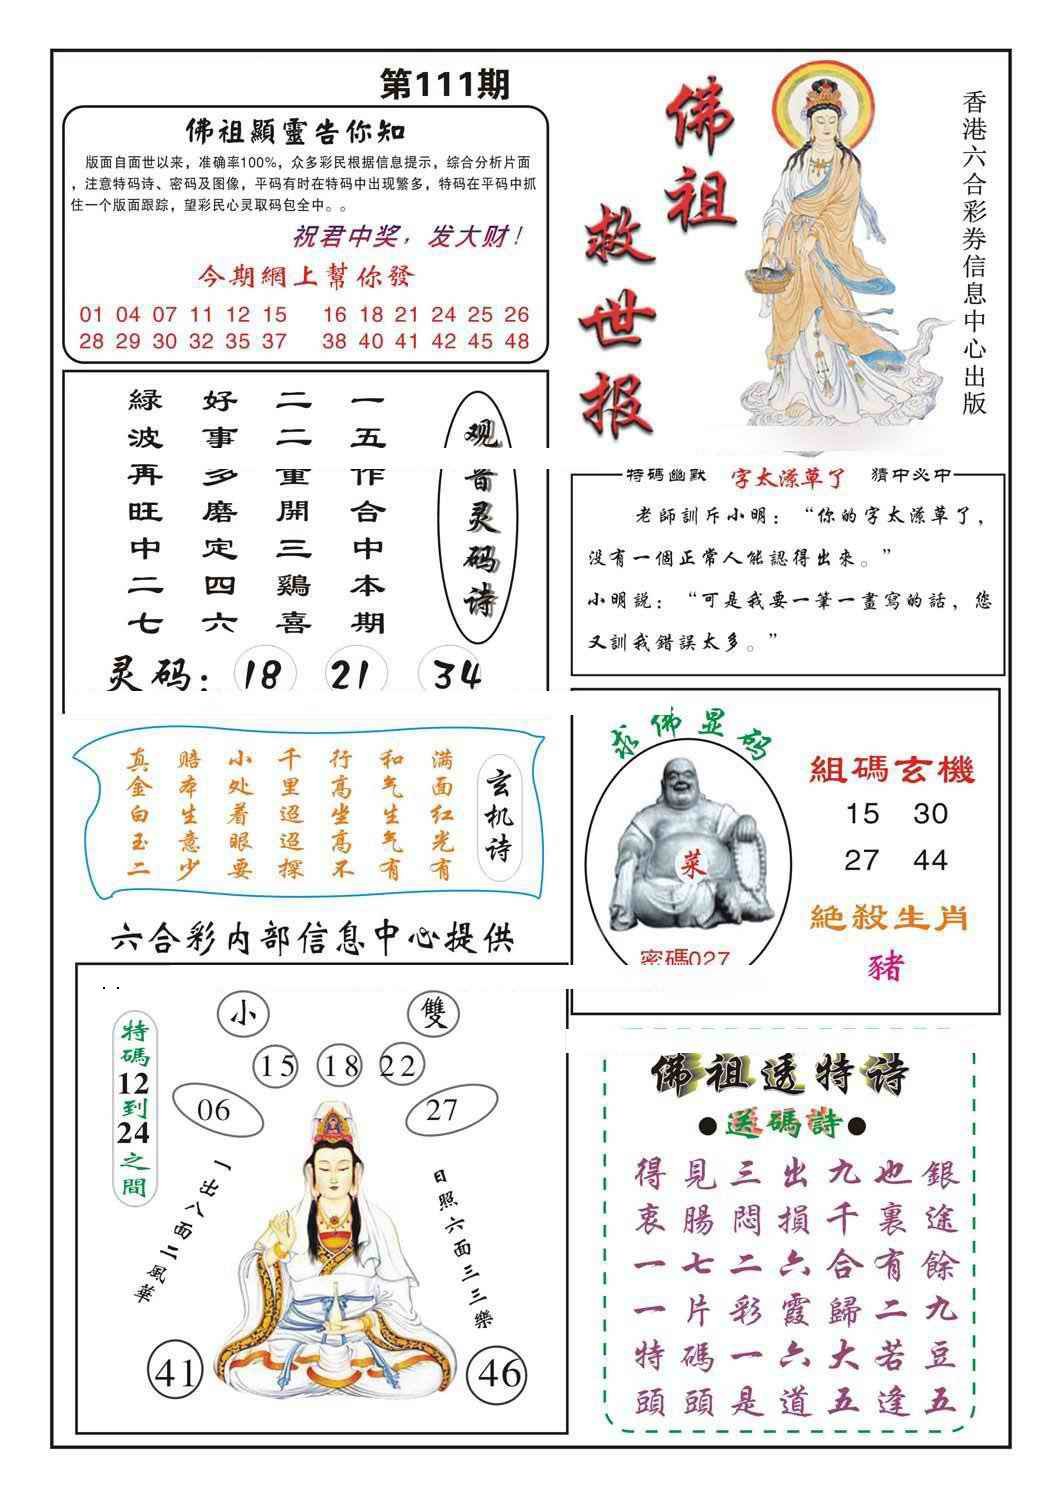 第111期
佛祖顯靈告你知
版面自面世以来，准确率100%，众多彩民根据信息提示，综合分析片面
，注意特码诗、密码及图像，平码有时在特码中出现繁多，特码在平码中抓
住一个版面跟踪，望彩民心灵取码包全中。。
祝君中奖，发大财！
今期網上幫你發
01 04 07 11 12 15 16 18 21 24 25 26
28 29 30 32 35 37 38 40 41 42 45 48
佛祖
救世报
香港六合彩券信息中心出版
观音灵码诗
一五作合中本期
二二重開三鷄喜
好事多磨定四六
緑波再旺中二七
灵码：18 21 34
特碼幽默 字太潦草了 猜中必中
老師訓斥小明：“你的字太潦草了，
没有一個正常人能認得出來。”
小明説：“可是我要一筆一畫寫的話，您
又訓我錯誤太多。”
玄机诗
满面红光有有
和气生气有
行高坐高不
千里迢迢探
小处着眼要
赔本生意少
真金白玉二
求佛显码
菜
密碼027
組碼玄機
15 30
27 44
絶殺生肖
豬
六合彩内部信息中心提供
特碼12到24之間
小 雙
15 18 22
06 27
一出八面二風華
日照六面三三樂
41 46
佛祖透特诗
●送碼詩●
得見三出九也銀
衷腸悶損千裏途
一七二六合有餘
一片彩霞歸二九
特碼一六大若豆
頭頭是道五逢五